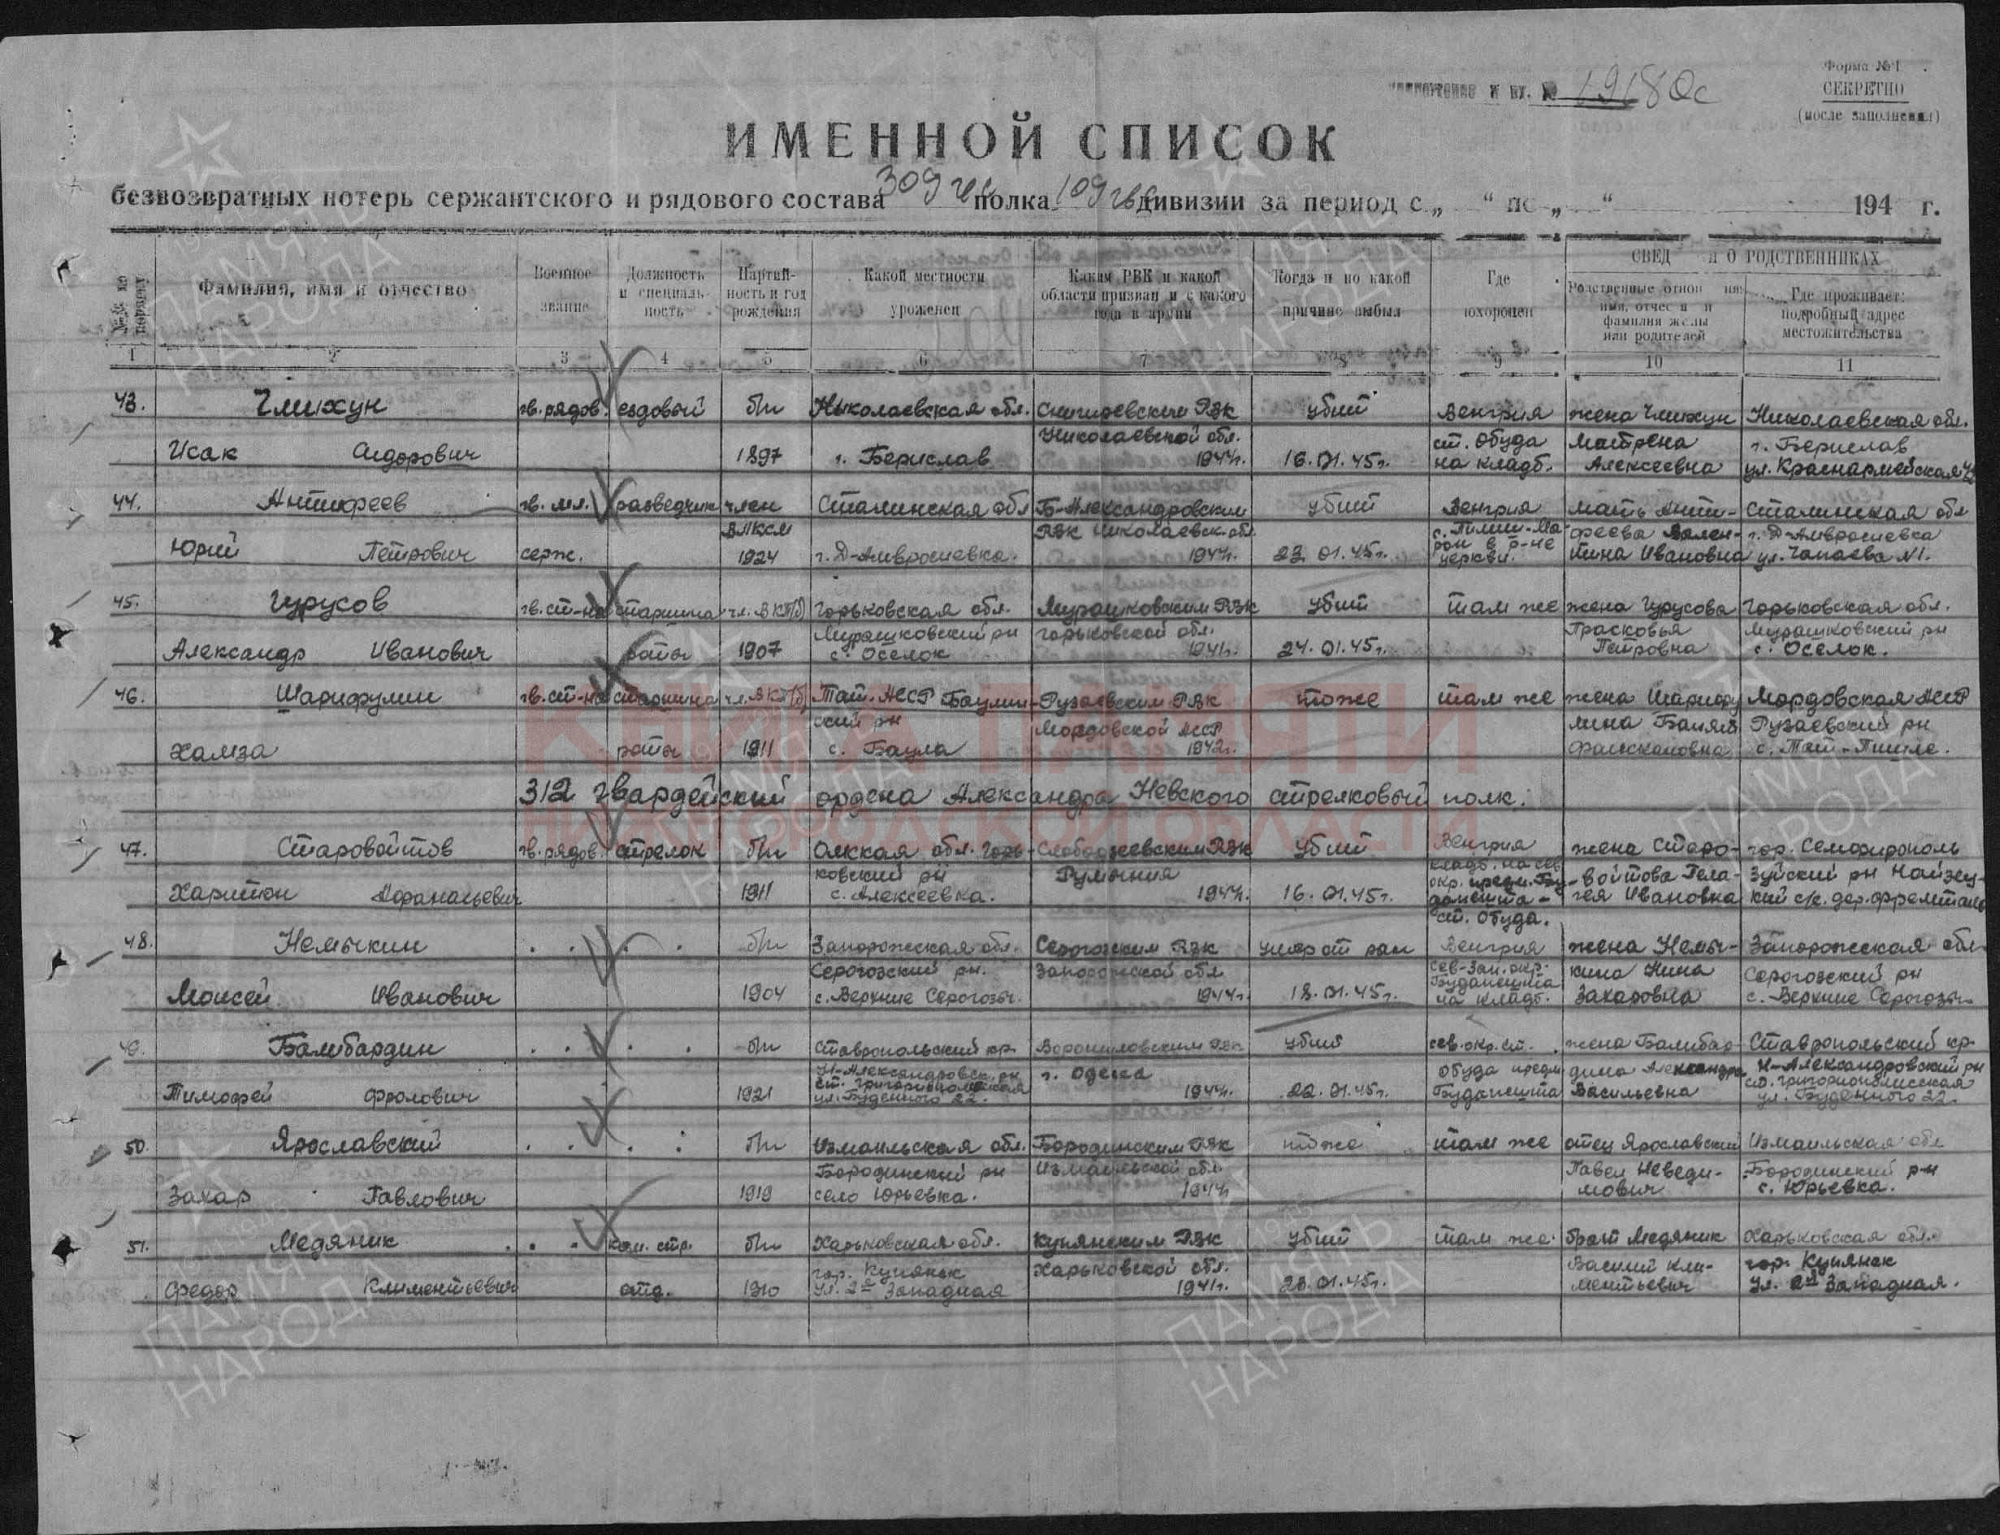 Форма №1
СЕКРЕТНО
(после заполнения)
и вх. № 1918 0с
ИМЕННОЙ СПИСОК
безвозвратных потерь сержантского и рядового состава 309 гв полка 109 гв дивизии за период с „ “ по „ “ 194 г.
№№ по порядку | Фамилия, имя и отчество | Военное звание | Должность и специальность | Партийность и год рождения | Какой местности уроженец | Каким РВК и какой области призван и с какого года в армии | Когда и по какой причине выбыл | Где похоронен | СВЕД Я О РОДСТВЕННИКАХ
Родственные отнош ия: имя, отчес и фамилия жены или родителей | Где проживает: подробный адрес местожительства
1 2 3 4 5 6 7 8 9 10 11
43. Члихун гв. рядов. ездовый б/п Николаевская обл. РВК убит Венгрия жена Члихун Николаевская обл.
Николаевской обл. ст. Обуда Матрена г. Берислав
Исак Сидорович 1897 г. Берислав 1944г. 16.01.45г. на кладб. Алексеевна ул. Красноармейская
44. Антифеев гв. мл. разведчик член Сталинская обл Б-Александровским убит Венгрия мать Анти- Сталинская обл
ВЛКСМ РВК Николаевск. обл. феева Вален-
Юрий Петрович серж. 1924 г. Д-Амвросиевка. 1944г. 23.01.45г. церкви. тина Ивановна г. Д-Амвросиевка
ул. Чапаева №1.
45. Гурусов гв. ст-на старшина чл. ВКП(б) Горьковская обл. Мурашковским РВК убит там же жена Гурусова Горьковская обл.
Мурашковский рн Горьковской обл. Прасковья Мурашковский рн
Александр Иванович роты 1907 с. Оселок 1941г. 24.01.45г. Петровна с. Оселок.
46. Шарифулин гв. ст-на старшина чл. ВКП(б) Тат. АССР Баулин- Рузаевским РВК тоже там же жена Шарифу Мордовская АССР
ский рн Мордовской АССР лина Рузаевский рн
Хамза роты 1911 с. Баула 1942г. с. Тат-Пишле.
312 гвардейский ордена Александра Невского стрелковый полк.
47. Старовойтов гв. рядов. стрелок б/п Омская обл. Горь- Слободзеевским РВК убит Венгрия жена Старо- гор. Семфирополь
ковский рн Румыния кладб. на сев. войтова Пела- Зуйский рн
Харитон Афанасьевич 1911 с. Алексеевка. 1944г. 16.01.45г. окр. гея Ивановна
ст. Обуда.
48. Немыкин . . . . б/п Запорожская обл. Серогозским РВК умер от ран Венгрия жена Немы- Запорожская обл
Серогозский рн. Запорожской обл сев-зап. окр. кина Нина Серогозский рн
Моисей Иванович 1904 с. Верхние Серогозы. 1944г. 18.01.45г. Будапешта на кладб. Захаровна с. Верхние Серогозы
49. Балибардин . . . . б/п Ставропольский кр. Ворошиловским РВК убит сев. окр. ст. жена Балибар- Ставропольский кр-
Н-Александровск. рн г. Одесса Обуда предм дина Александра Н-Александровский рн
Тимофей Фролович 1921 ст. Григориполисская 1944г. 22.01.45г. Будапешта Васильевна ст. Григорополисская
ул. Буденного 22. ул. Буденного 22.
50. Ярославский . . . : б/п Измаильская обл. Бородинским РВК тоже там же отец Ярославский Измаильская обл
Бородинский рн Измаильской обл. Павел Неведи- Бородинский р-н
Захар Павлович 1919 село Юрьевка. 1944г. мович с. Юрьевка.
51. Медяник . . . ком. стр. б/п Харьковская обл. Купянским РВК убит там же брат Медяник Харьковская обл.
гор. Купянск Харьковской обл. Василий Кли- гор. Купянск
Федор Климентьевич отд. 1910 ул. 2я Западная 1941г. 20.01.45г. ментьевич ул. 2я Западная.
КНИГА ПАМЯТИ
НИЖЕГОРОДСКОЙ ОБЛАСТИ
ПАМЯТЬ
НАРОДА